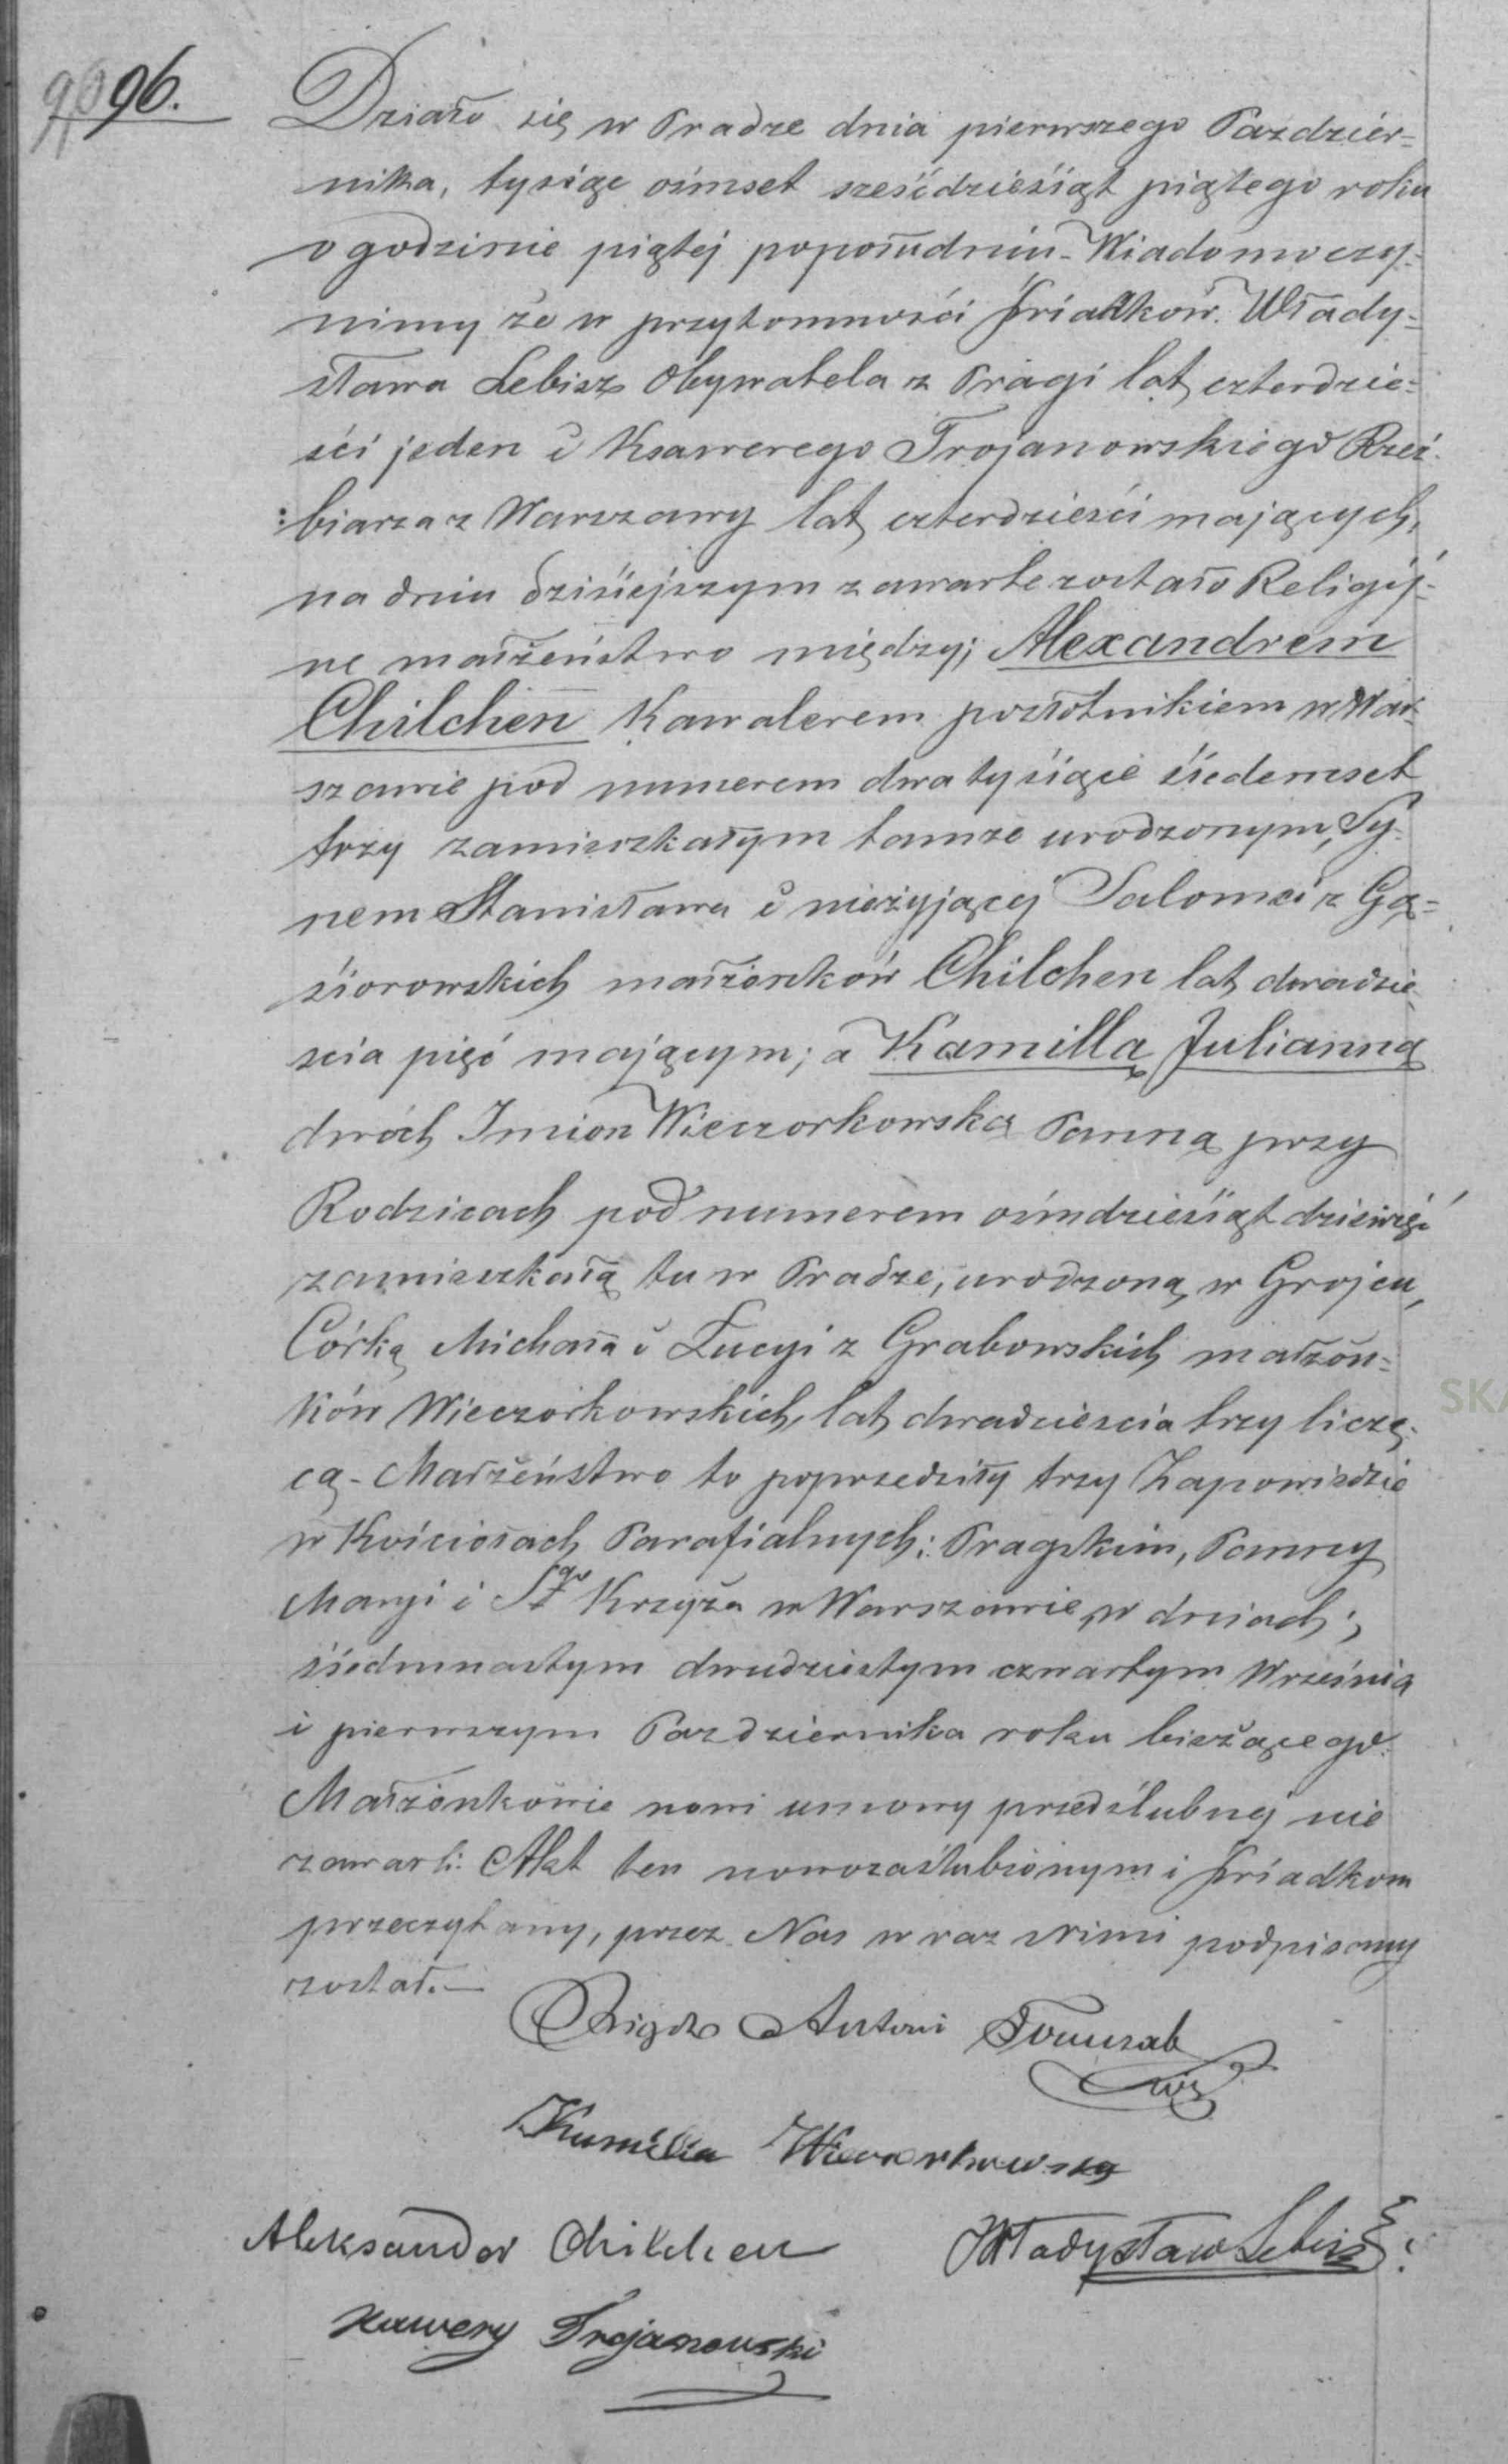 96.
Działo się w Pradze dnia pierwszego Pazdzier=
nika, tysiąc ośmset sześćdziesiąt piątego roku
o godzinie piątej popołudniu - Wiadomo czy=
nimy że w przytomności Świadków. Włady=
sława Lebisz Obywatela z Pragi lat czterdzie=
ści jeden i Ksawerego Trojanowskiego Rzeź=
:biarza z Warszawy lat czterdzieści mających,
na dniu dzisiejszym zawarte zostało Religij=
ne małżeństwo między; Alexandrem
Chilchen Kawalerem pozłotnikiem w War=
szawie pod numerem dwa tysiące siedemset
trzy zamieszkałym tamże urodzonym, Sy=
nem Stanisława i nieżyjącej Salomei z Gą=
siorowskich małżonków Chilchen lat dwadzie
scia pięć mającym; a Kamillą Julianną
dwóch Imion Wieczorkowska Panną przy
Rodzicach pod numerem ośmdziesiąt dziewięć
zamieszkałą tu w Pradze, urodzoną w Grojcu,
Córką Michała i Łucyi z Grabowskich małżon=
ków Wieczorkowskich, lat dwadziescia trzy liczą=
cą - Małżeństwo to poprzedziły trzy Zapowiedzie
w Kościołach Parafialnych: Pragskim, Panny
Maryi i Sgo Krzyża w Warszawie w dniach;
siedmnastym dwudziestym czwartym Września
i pierwszym Pazdziernika roku bieżącego.
Małżonkowie nowi umowy przedślubnej nie
zawarli. Akt ten nowozaślubionym i Świadkom
przeczytany, przez Nas wraz z Nimi podpisany
został. —
Xiądz Antoni
Kamilla Wieczorkowska
Aleksander Chilchen Władysław Lebisz
Xawery Trojanowski